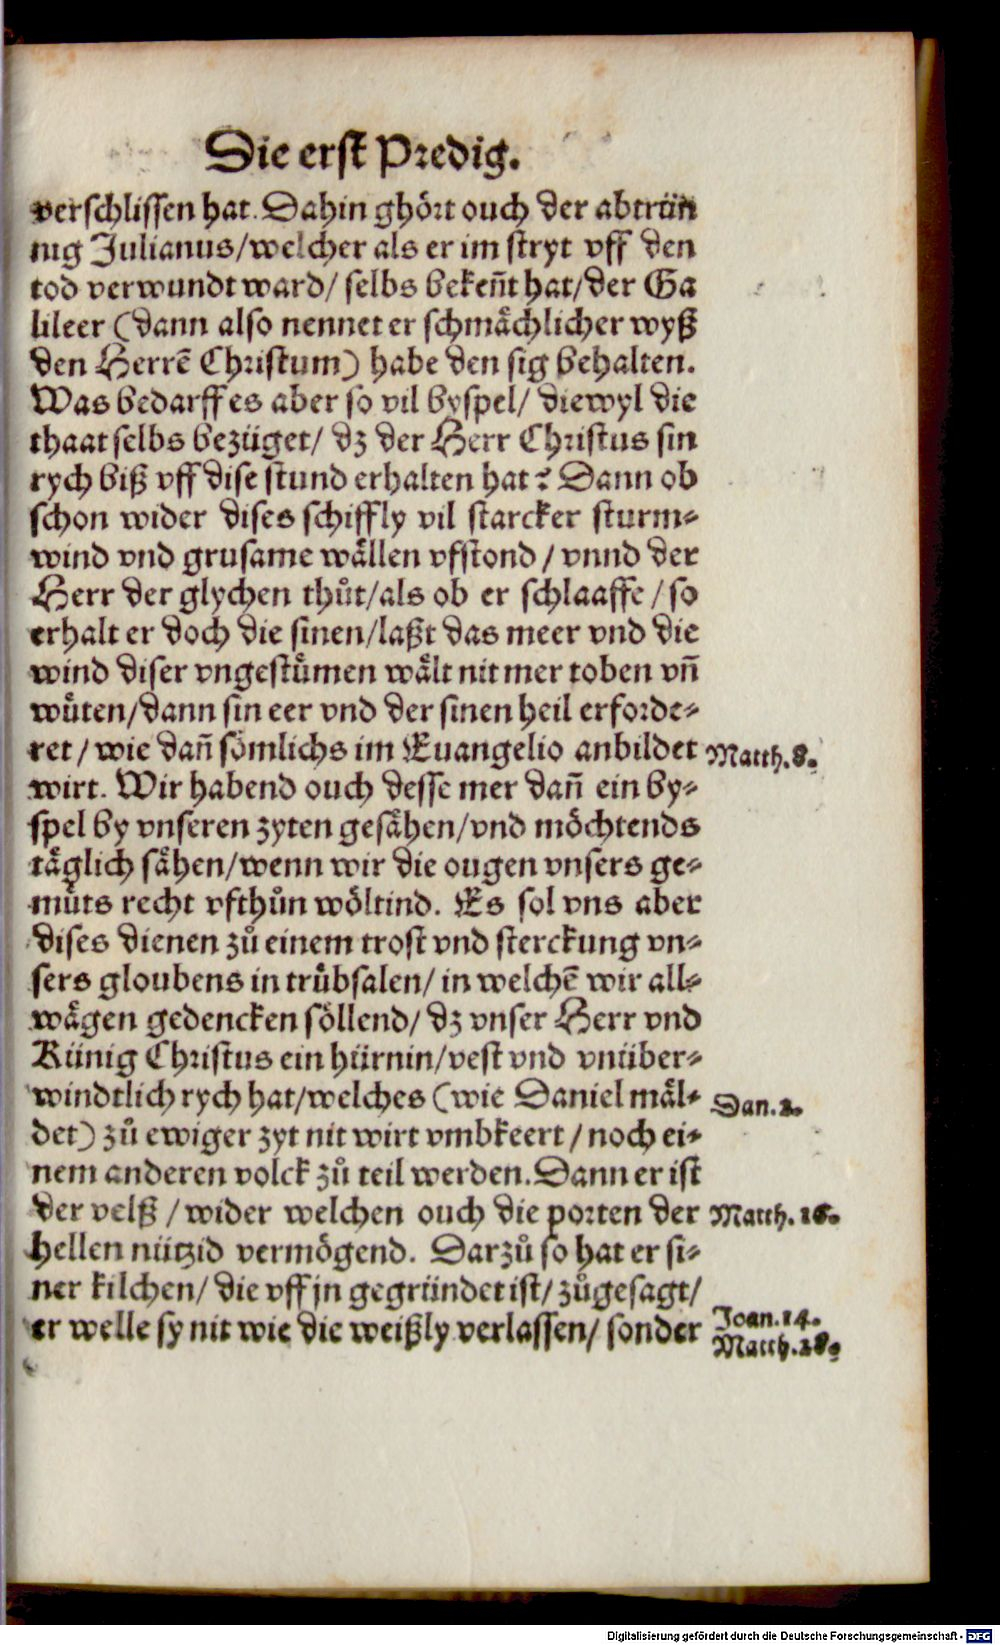 Die erst Predig.
verschlissen hat. Dahin ghört ouch der abtrün
nig Julianus/welcher als er im stryt vff den
tod verwundt ward/ selbs bekeñt hat/der Ga
lileer (dann also nennet er schmaͤchlicher wyß
den Herrẽ Christum) habe den sig behalten.
Was bedarff es aber so vil byspel/ diewyl die
thaat selbs bezüget/ dz der Herr Christus sin
rych biß vff dise stund erhalten hat? Dann ob
schon wider dises schiffly vil starcker sturm⸗
wind vnd grusame waͤllen vfstond / vnnd der
Herr der glychen thuͦt/als ob er schlaaffe / so
erhalt er doch die sinen/laßt das meer vnd die
wind diser vngestuͤmen waͤlt nit mer toben vñ
wuͤten/dann sin eer vnd der sinen heil erforde⸗
ret / wie dañ soͤmlichs im Euangelio anbildet
Matth.8.
wirt. Wir habend ouch desse mer dañ ein by⸗
spel by vnseren zyten gesaͤhen/vnd moͤchtends
taͤglich saͤhen/wenn wir die ougen vnsers ge⸗
muͤts recht vfthuͦn woͤltind. Es sol vns aber
dises dienen zuͦ einem trost vnd sterckung vn⸗
sers gloubens in truͤbsalen/ in welchẽ wir all⸗
waͤgen gedencken soͤllend/ dz vnser Herr vnd
Künig Christus ein hürnin/vest vnd vnüber⸗
windtlich rych hat/welches (wie Daniel maͤl⸗
Dan.2.
det) zuͦ ewiger zyt nit wirt vmbkeert / noch ei⸗
nem anderen volck zuͦ teil werden. Dann er ist
der velß / wider welchen ouch die porten der
Matth. 16.
hellen nützid vermoͤgend. Darzuͦ so hat er si⸗
ner kilchen/ die vff jn gegründet ist/ zuͦgesagt/
Joan.14.
er welle sy nit wie die weißly verlassen/ sonder
Matth.28.
Digitalisierung gefördert durch die Deutsche Forschungsgemeinschaft - DFG